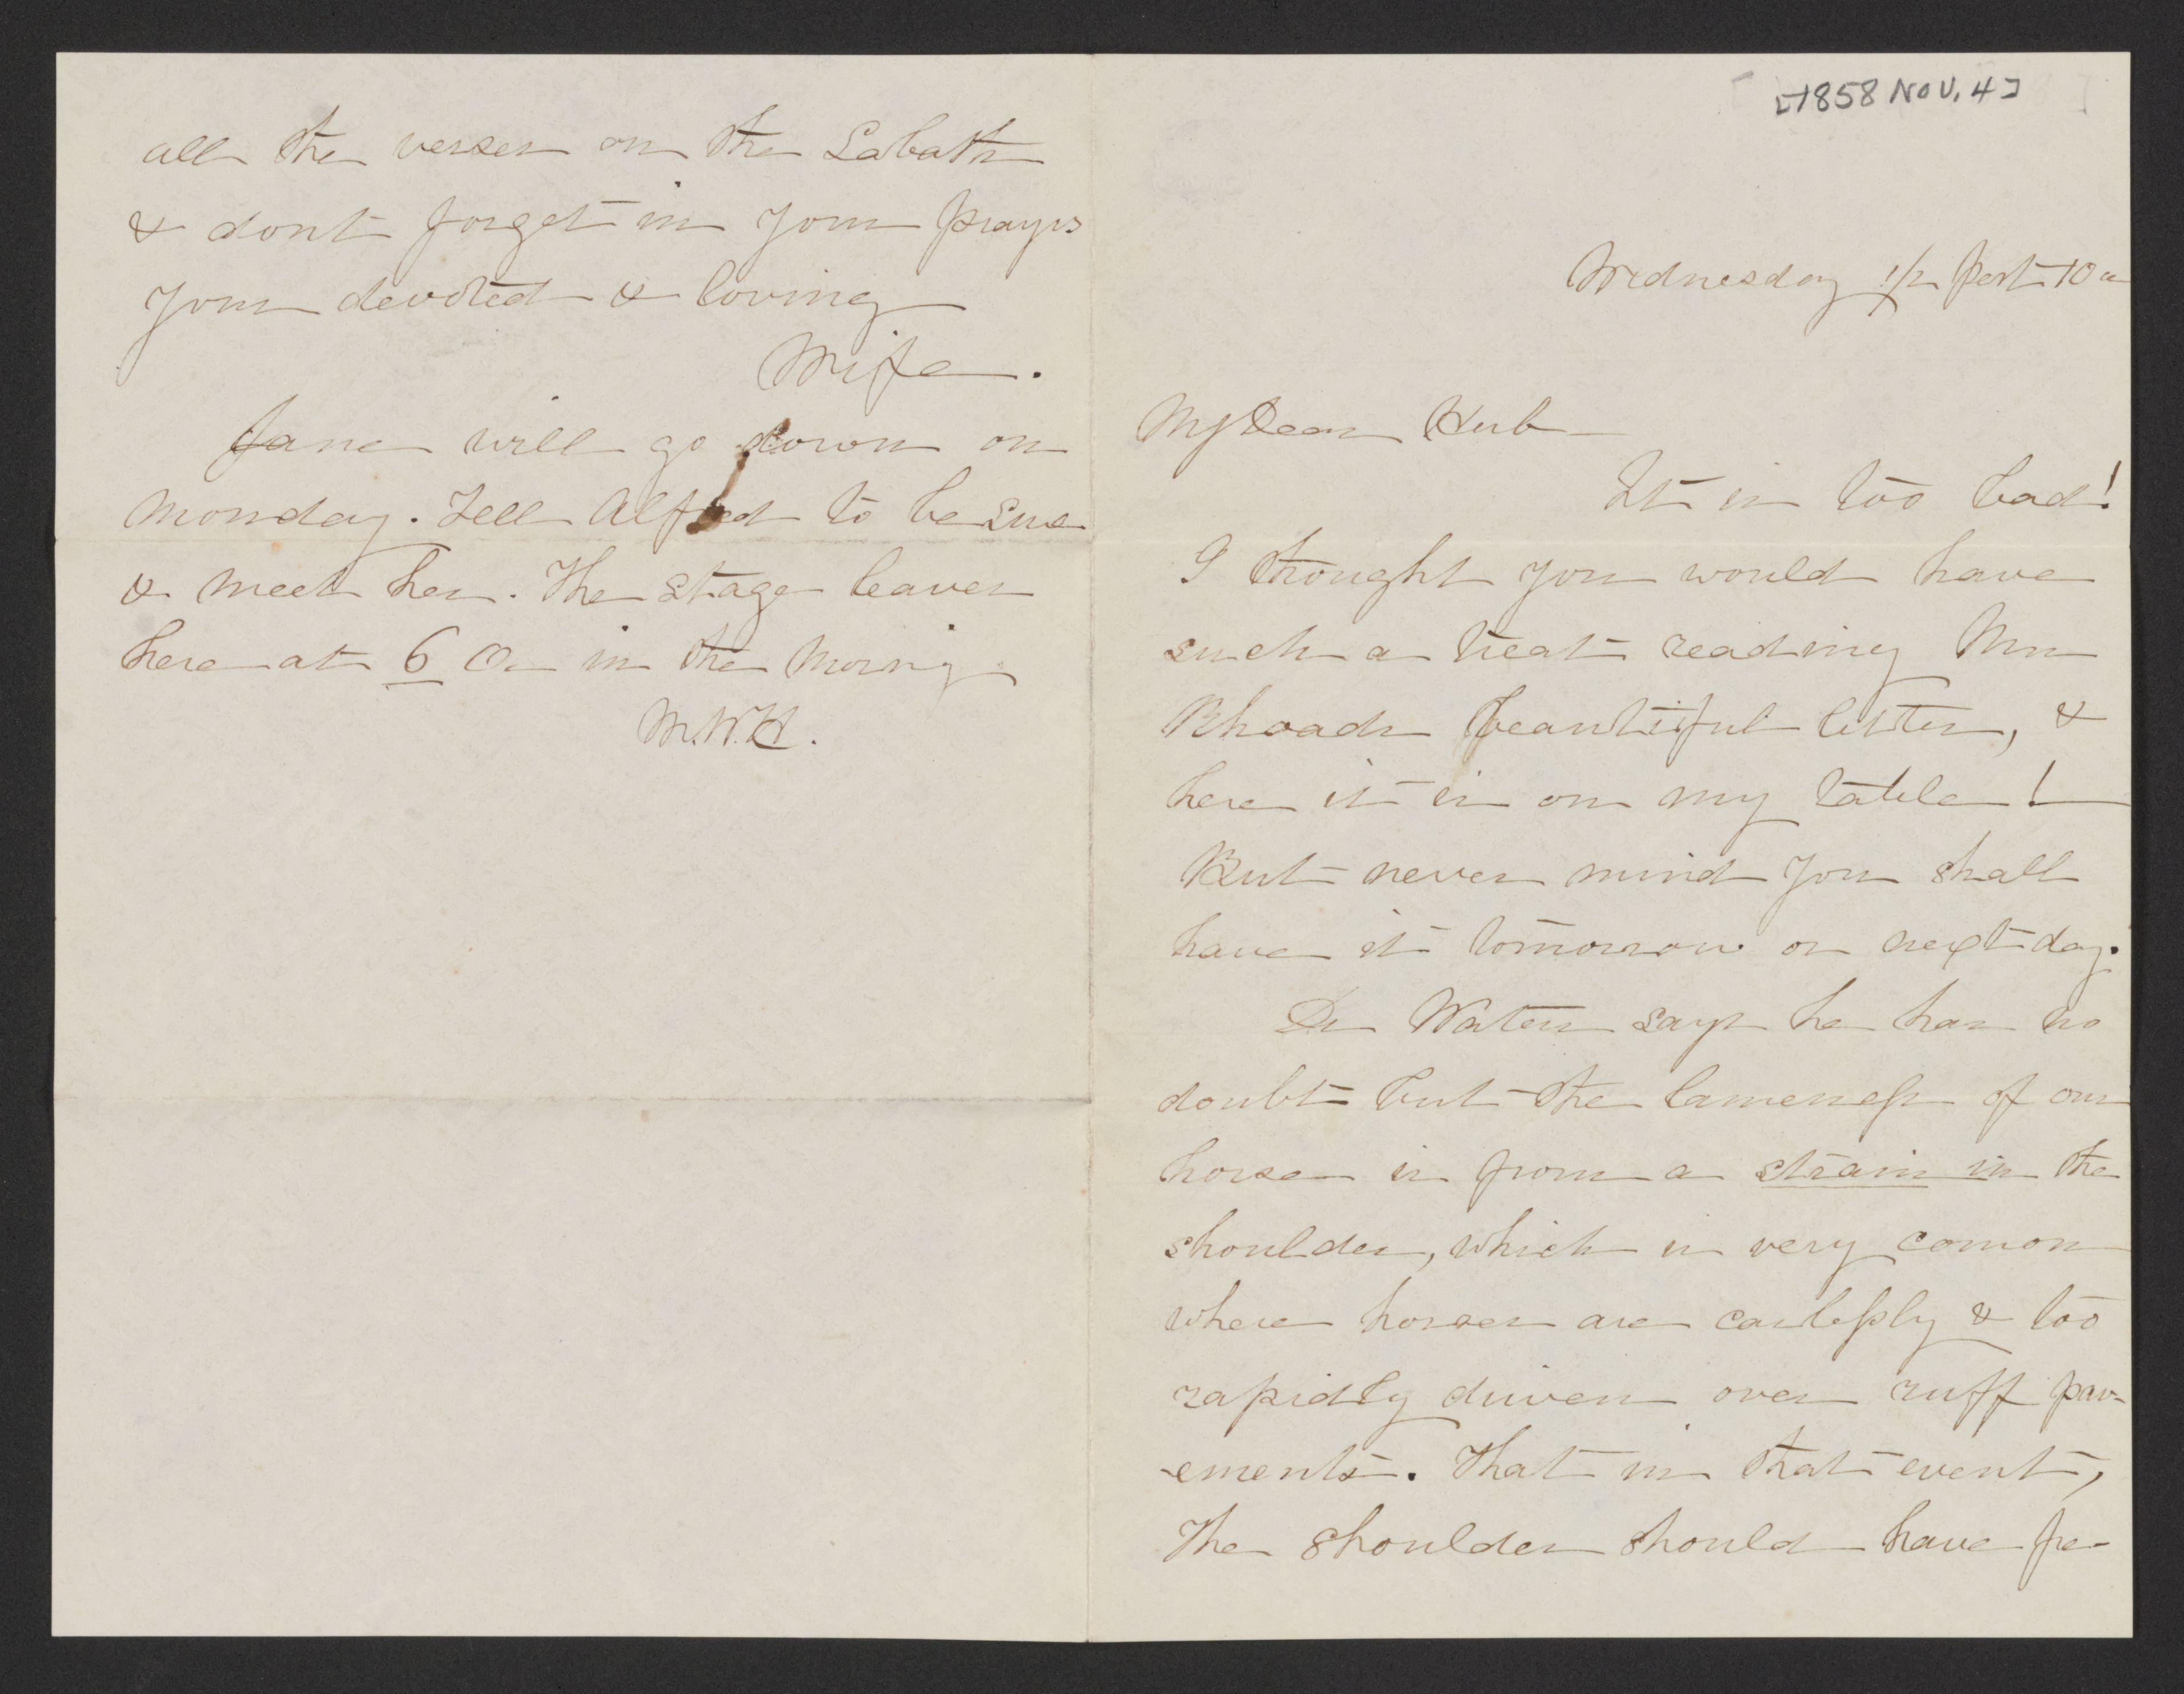 all the verses on the Sabath
& dont forget in your prayrs
your devoted & loving
Wife.
Jane will go down on
Monday. Tell Alfred to be sure
& meet her. The stage leaves
here at 6 O in the morning
M.W.H.
[1858 NOV. 4]
Wednesday 1/2 past 10
My Dear Hub
It is too bad!
I thought you would have
such a treat reading Mrs
Rhoads beautiful letter, &
here it is on my table!
But never mind you shall
have it tomorrow or next day.
Dr Waters says he has no
doubt but the lameness of our
horse is from a strain in the
shoulder, which is very comon
where horses are carlessly & too
rapidly driven over ruff pav-
-ements. That in that event,
The shoulder should have fre-